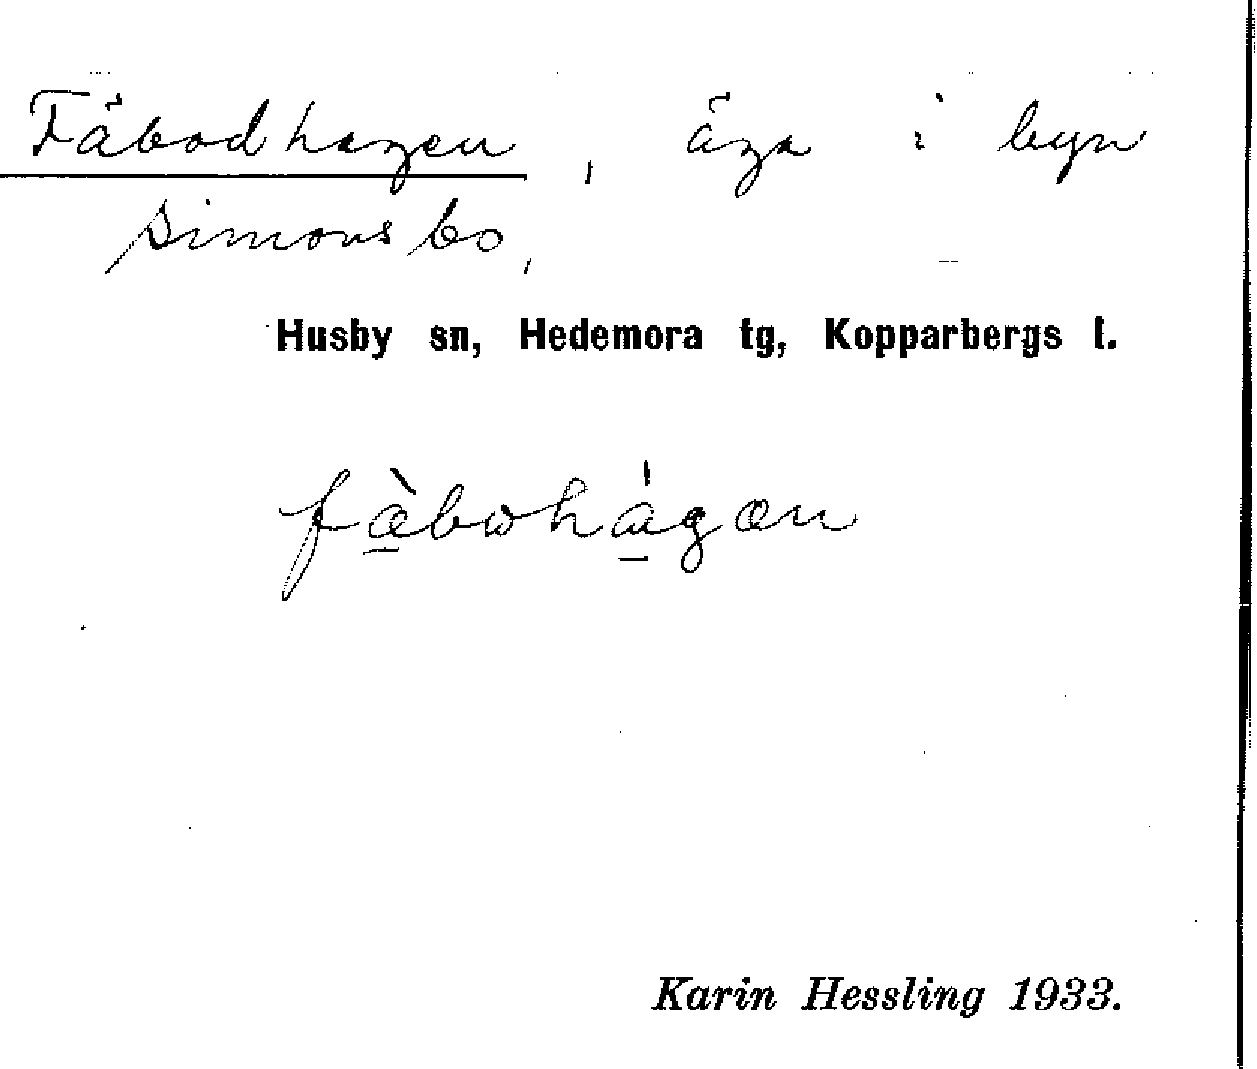 Fäbodhagen, äga i byn
Simonsbo,
Husby sn, Hedemora tg, Kopparbergs l.
fæ̀bωhágæn
Karin Hessling 1933.